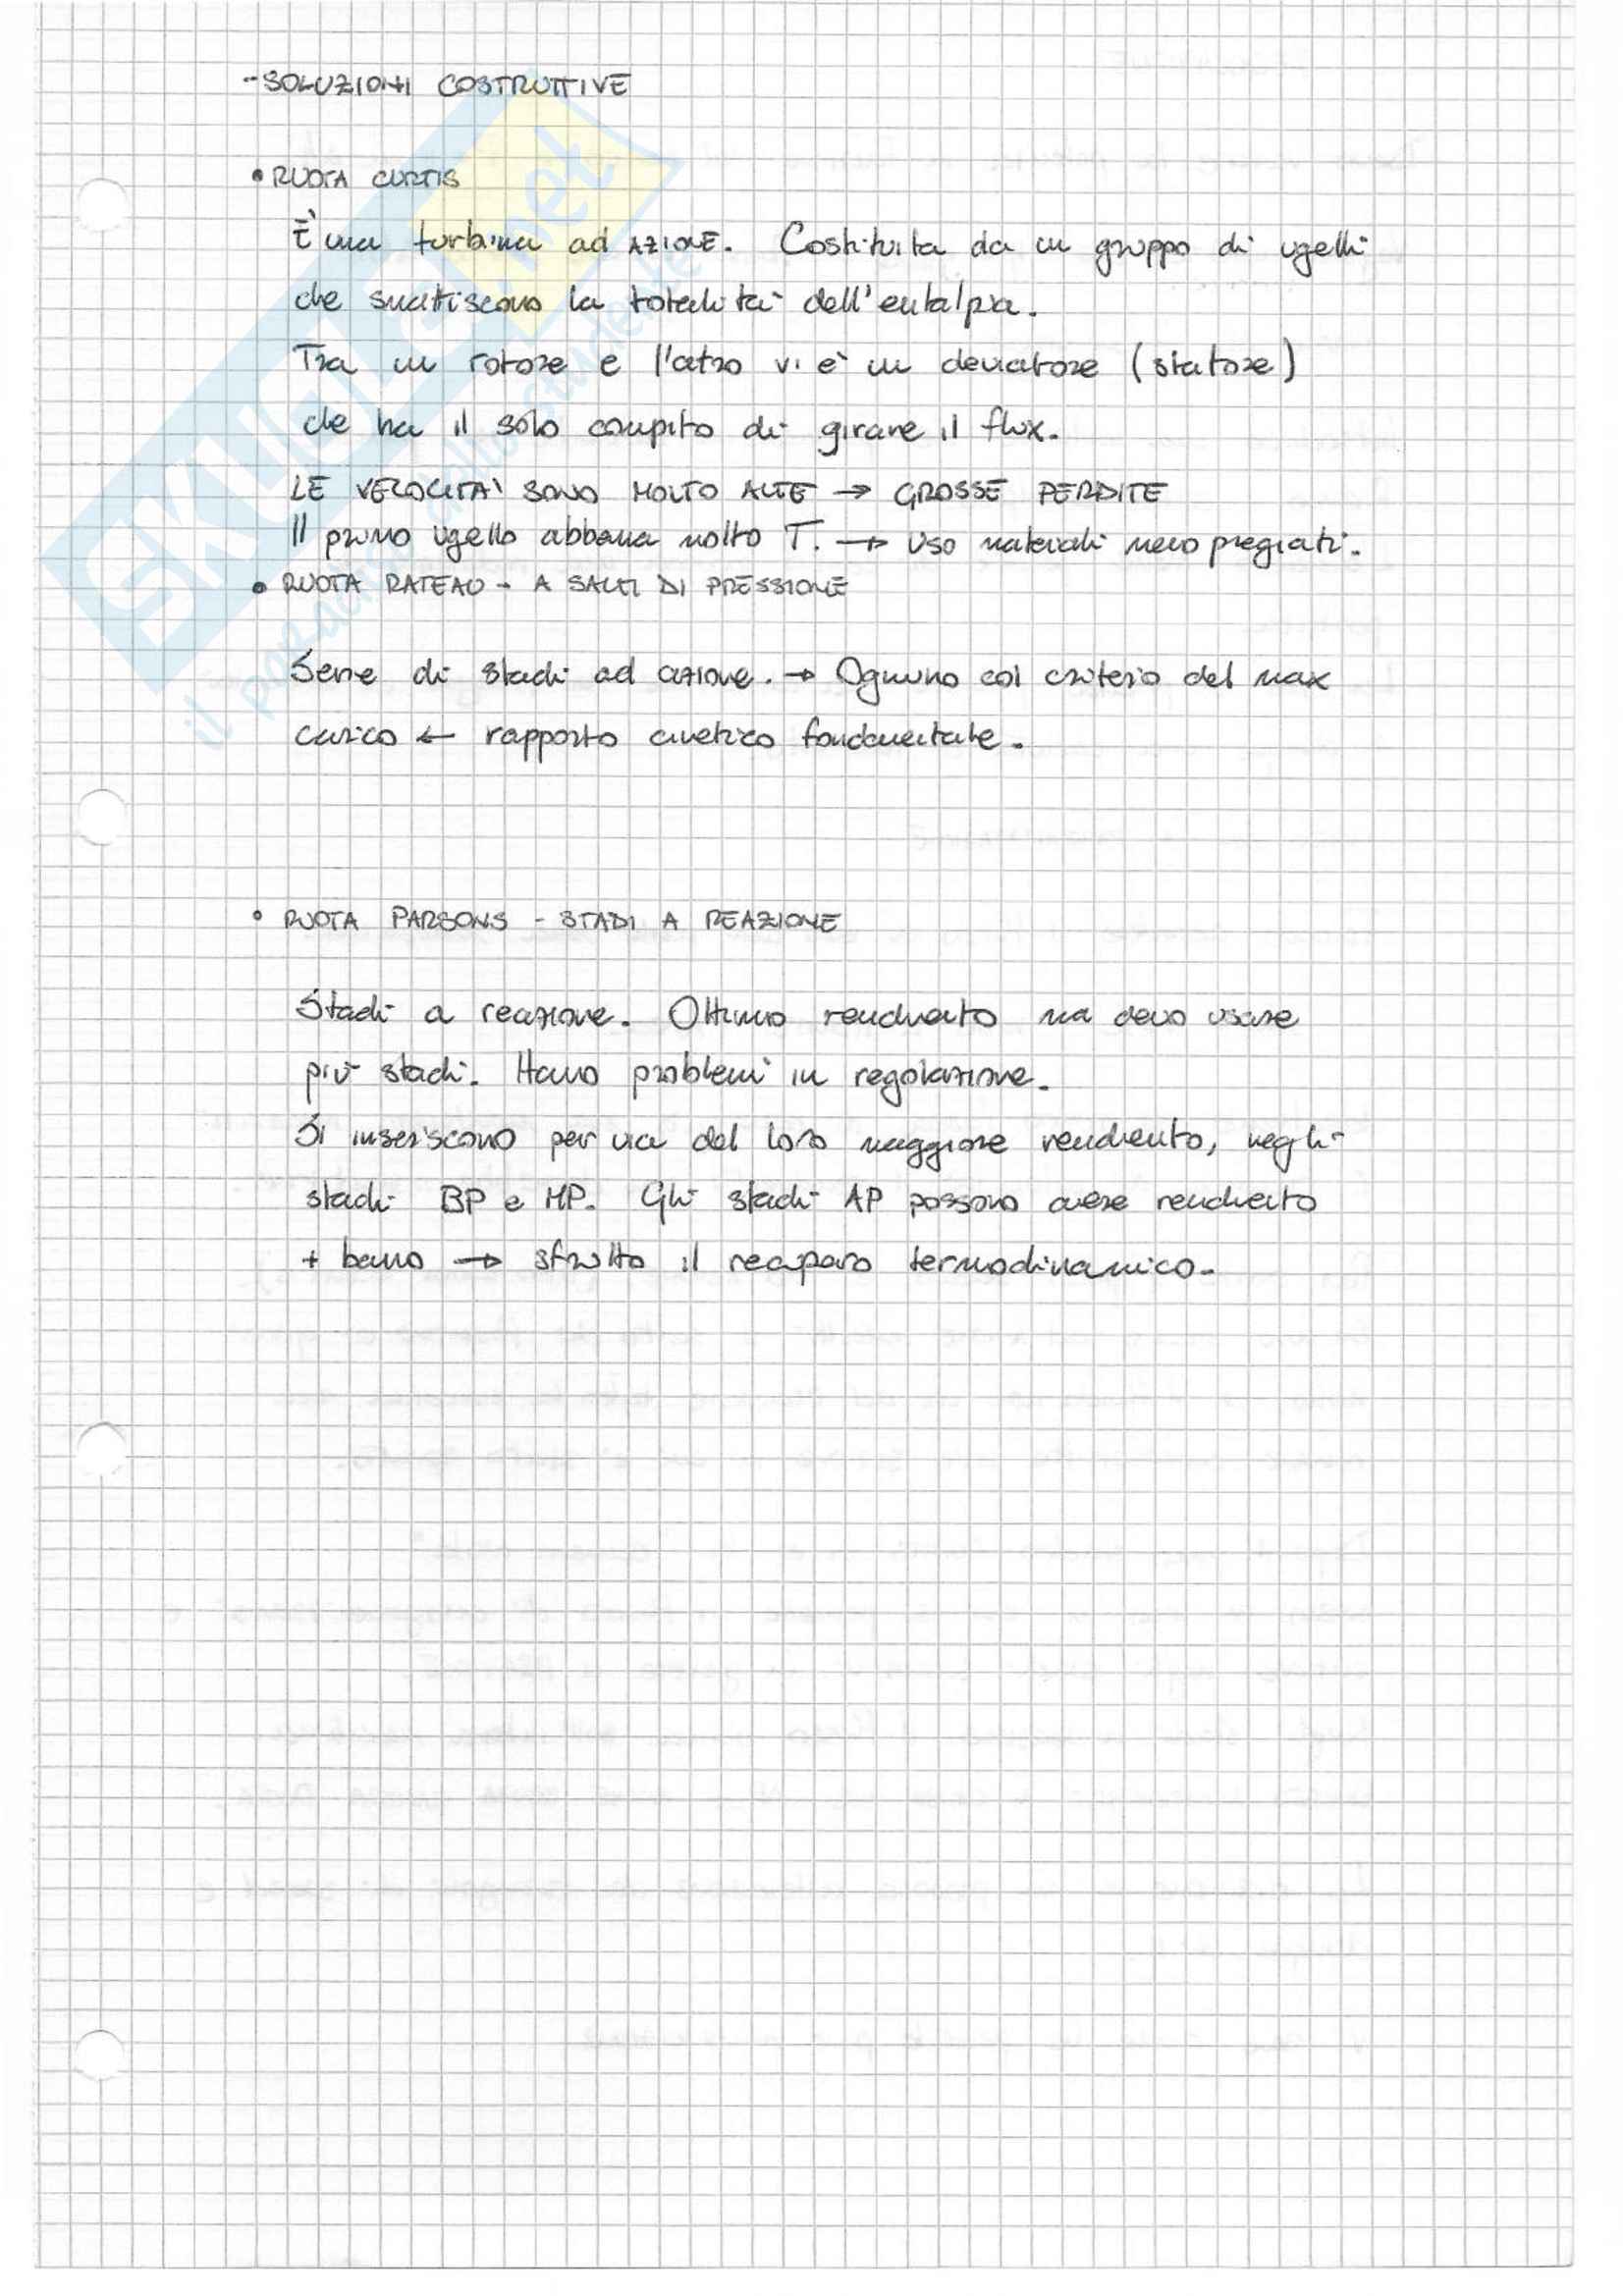 - SOLUZIONI COSTRUTTIVE
• RUOTA CURTIS
È una turbina ad AZIONE. Costituita da un gruppo di ugelli
che smaltiscono la totalità dell'entalpia.
Tra un rotore e l'altro vi è un deviatore (statore)
che ha il solo compito di girare il flux.
LE VELOCITA' SONO MOLTO ALTE → GROSSE PERDITE
Il primo ugello abbassa molto T. → Uso materiali meno pregiati.
• RUOTA RATEAU - A SALTI DI PRESSIONE
Serie di stadi ad azione. → Ognuno col criterio del max
carico ← rapporto cinetico fondamentale.
• RUOTA PARSONS - STADI A REAZIONE
Stadi a reazione. Ottimo rendimento ma devo usare
più stadi. Hanno problemi in regolazione.
Si inseriscono per via del loro maggiore rendimento, negli
stadi BP e MP. Gli stadi AP possono avere rendimento
+ basso → sfrutto il recupero termodinamico.
SKUOLA.net
il portale degli studenti